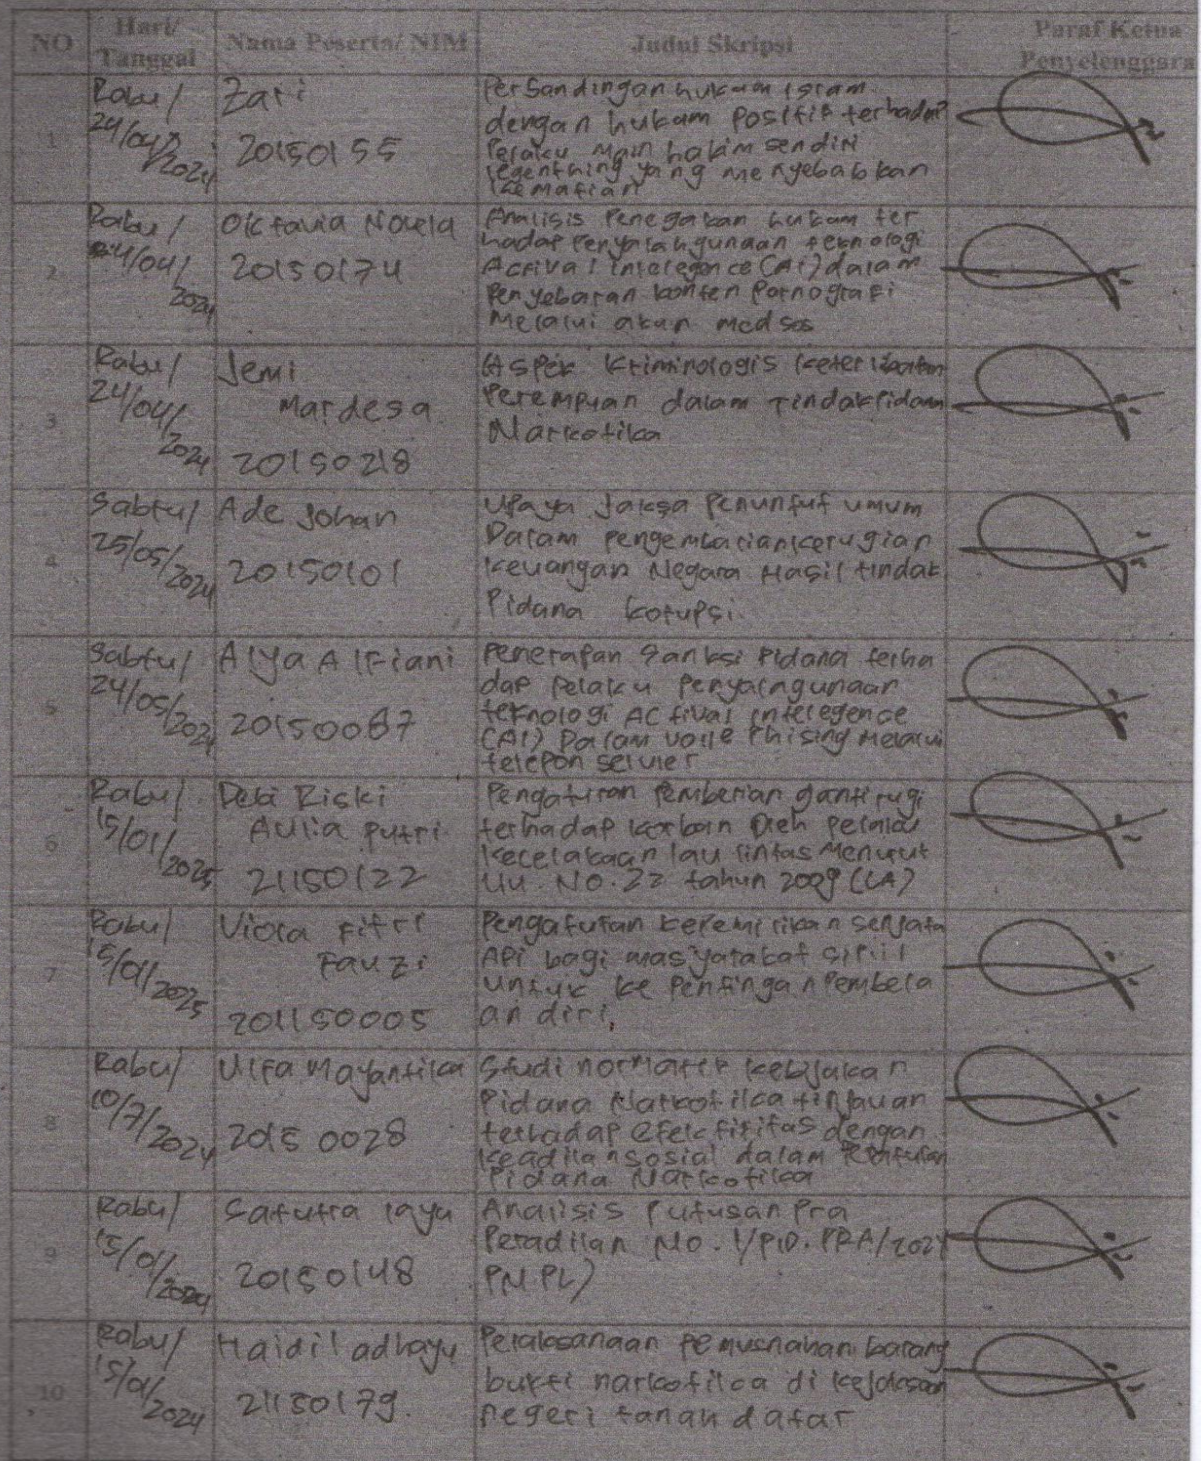 NO
Hari/
Tanggal
Nama Peserta/ NIM
Judul Skripsi
Paraf Ketua
Penyelenggara
1
Rabu/
24/04/
2024
Zari
20150155
Persandingan hukum islam
dengan hukum Positif terhadap
Pelaku main hakim sendiri
yang menyebabkan
kematian
2
Rabu/
24/04/
2024
Oktavia Novela
20150174
Analisis Penegakan hukum ter
hadap Penyalahgunaan teknologi
Actival intelegence (AI) dalam
Penyebaran konten Pornografi
Melalui akun medsos
3
Rabu/
24/04/
2024
Jemi
Mardesa
20150218
Aspek Kriminologis keterlibatan
Perempuan dalam Tindak Pidana
Narkotika
4
Sabtu/
25/05/
2024
Ade Johan
20150101
Upaya Jaksa Penuntut umum
Dalam pengembalian kerugian
keuangan Negara Hasil tindak
Pidana korupsi.
5
Sabtu/
24/05/
2024
Alya Alfiani
20150067
Penerapan Sanksi Pidana terha
dap Pelaku Penyalngunaan
teknologi Actival intelegence
(AI) Dalam Voice Phising Melalui
telepon seluler
6
Rabu/
15/01/
2025
Debi Riski
Aulia putri
21150122
Pengaturan Pemberian ganti rugi
terhadap korban Oleh pelaku
kecelakaan lau lintas Menurut
UU. NO. 22 tahun 2009 (LA)
7
Rabu/
15/01/
2025
Viola Fitri
Fauzi
201150005
Pengaturan kepemilikan senjata
Api bagi masyarakat sipil
Untuk ke Pentingan Pembela
an diri,
8
Rabu/
10/7/
2024
Ulfa Mayantika
20150028
Studi normatif kebijakan
Pidana Narkotika tinjauan
terhadap efektifitas dengan
keadilan sosial dalam
Pidana Narkotika
9
Rabu/
15/01/
2024
Saputra layu
20150148
Analisis Putusan Pra
Peradilan NO. 1/PID. PRA/2024
PN PL)
10
Rabu/
15/01/
2024
Haidil adhayu
21150179.
Pelaksanaan pemusnahan barang
bukti narkotika di kejaksaan
negeri tanah datar